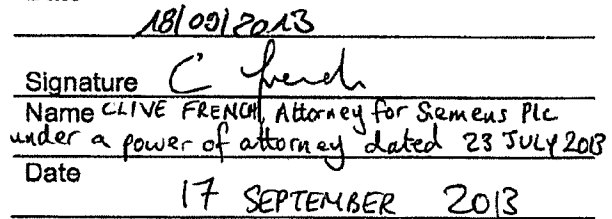 18/09/2013
Signature C French
Name CLIVE FRENCH, Attorney for Siemens Plc
under a power of attorney dated 23 JULY 2013
Date
17 SEPTEMBER 2013